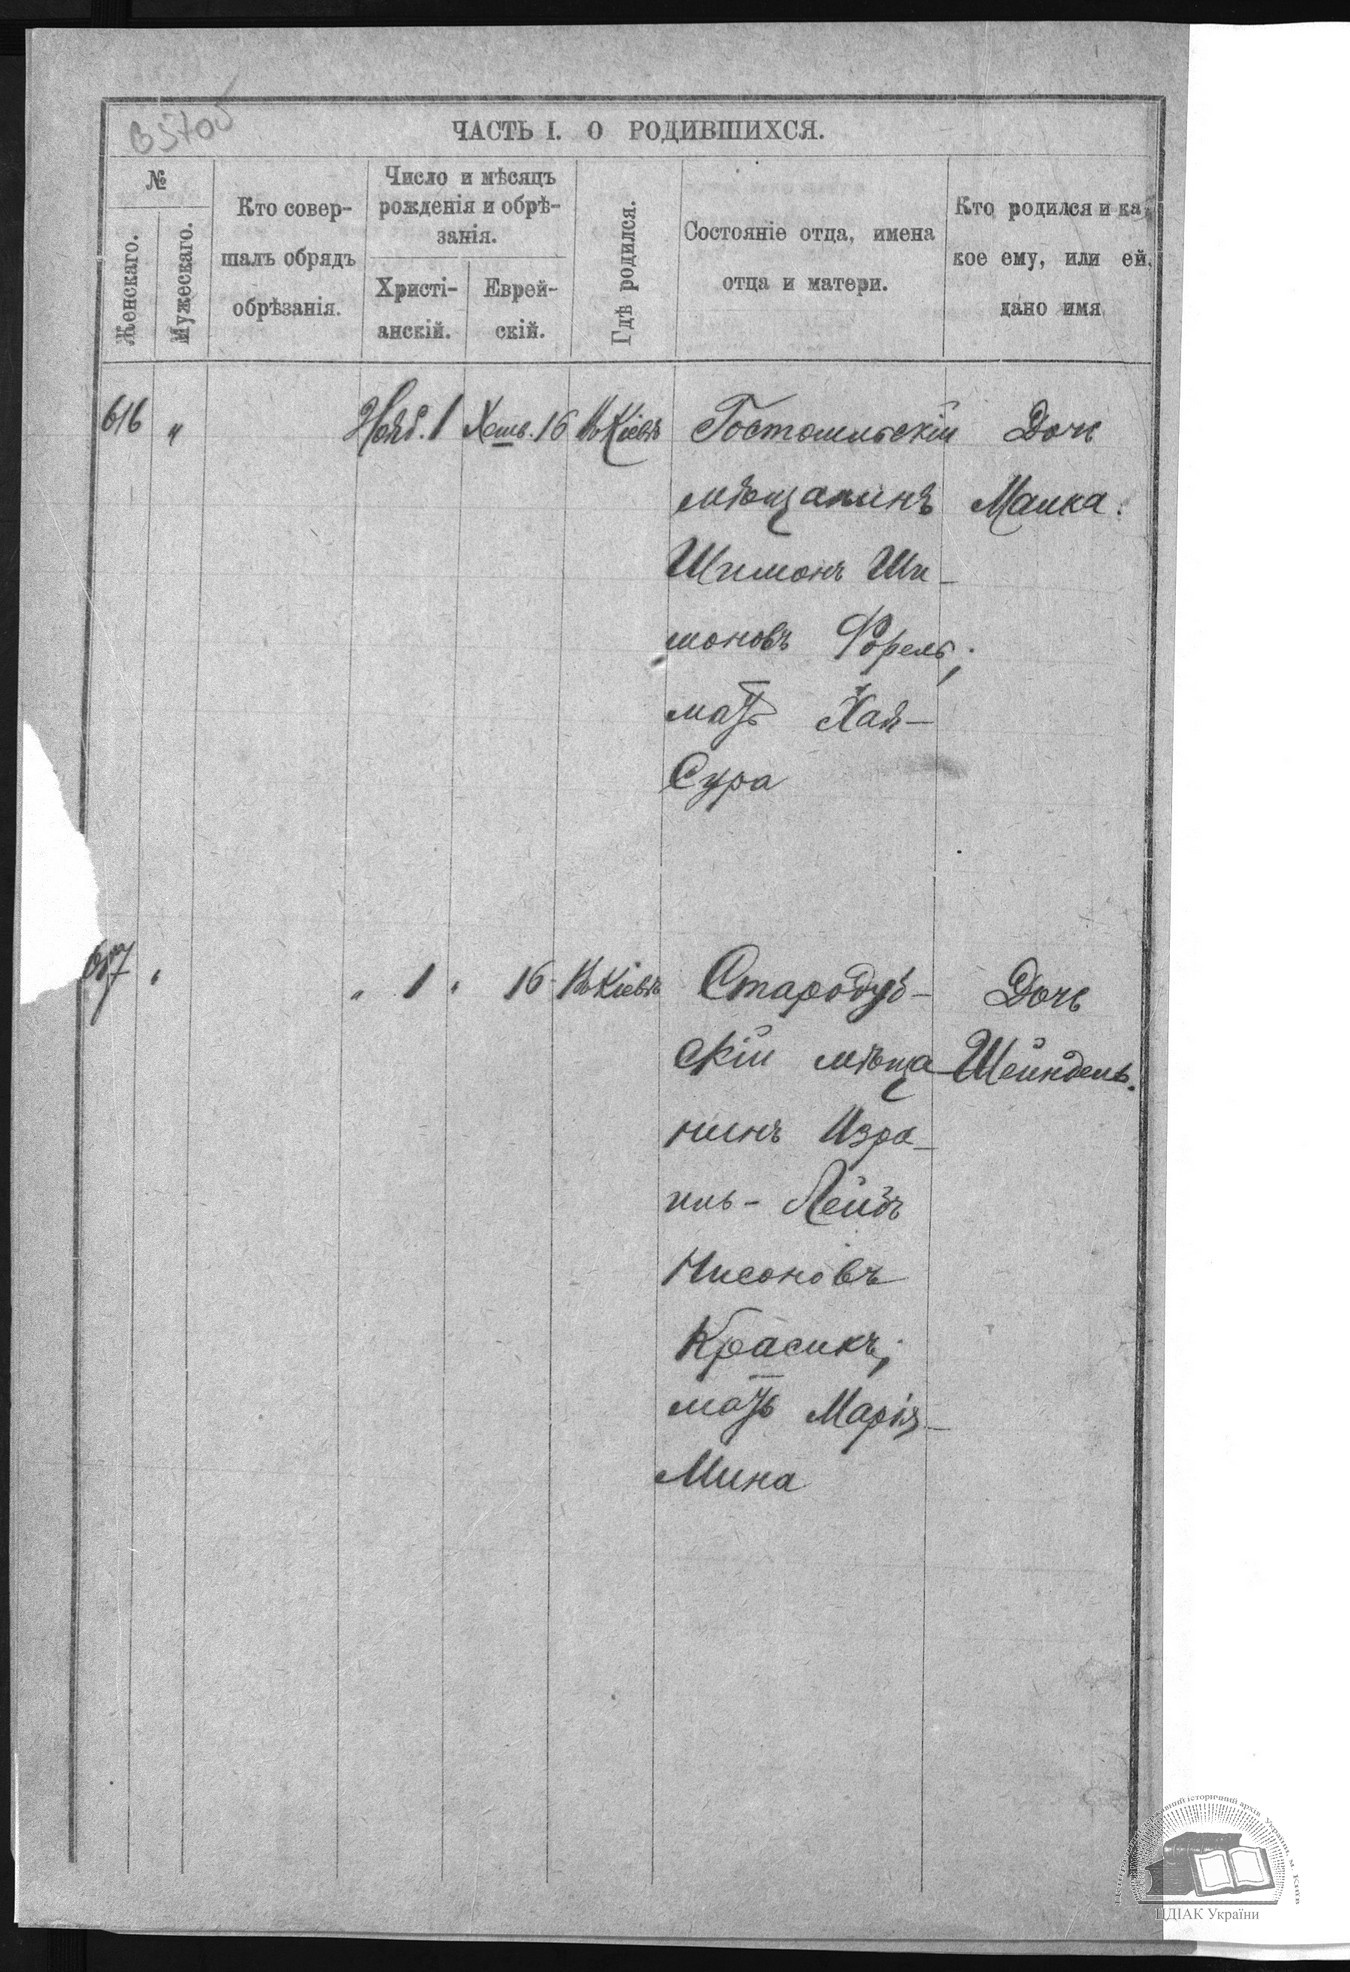 ЧАСТЬ I. О РОДИВШИХСЯ.
№
Женскаго.
Мужескаго.
Кто совер-
шалъ обрядъ
обрѣзанія.
Число и мѣсяцъ
рожденія и обрѣ-
занія.
Христі-
анскій.
Еврей-
скій.
Гдѣ родился.
Состояніе отца, имена
отца и матери.
Кто родился и ка
кое ему, или ей,
дано имя
616 " Нояб. 1 Хешв. 16 Въ Кіевѣ Гостомельскій Дочь
мѣщанинъ Малка.
Шимонъ Ши-
моновъ Форель;
мать Хая-
Сура
617 " " 1 " 16 Въ Кіевѣ Стародуб- Дочь
скій мѣща- Шейндель.
нинъ Изра-
иль-Лейбъ
Нисоновъ
Красикъ;
мать Марія-
Мина
ЦДІАК України